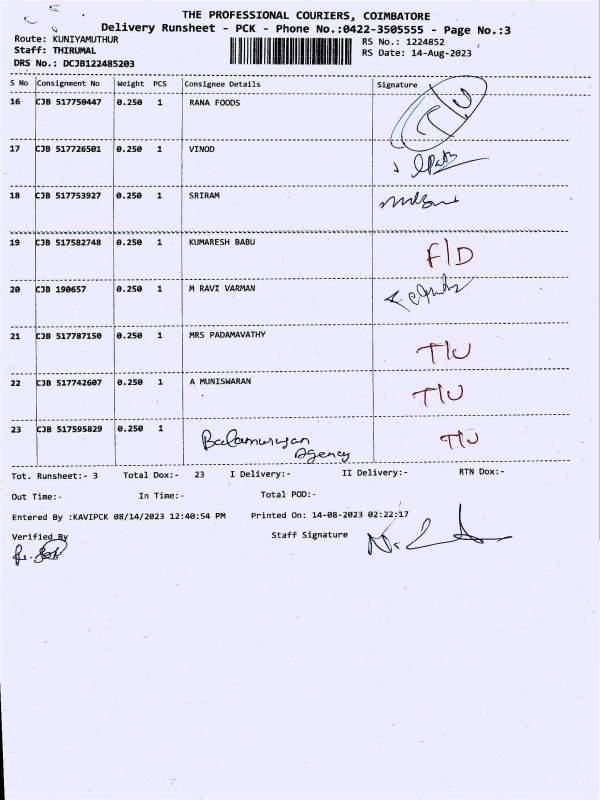 THE PROFESSIONAL COURIERS, COIMBATORE
Delivery Runsheet - PCK - Phone No.:0422-3505555 - Page No.:3
Route: KUNIYAMUTHUR RS No.: 1224852
Staff: THIRUMAL RS Date: 14-Aug-2023
DRS No.: DCJB122485203
S No Consignment No Weight PCS Consignee Details Signature
16 CJB 517750447 0.250 1 RANA FOODS T/U
17 CJB 517726501 0.250 1 VINOD
18 CJB 517753927 0.250 1 SRIRAM
19 CJB 517582748 0.250 1 KUMARESH BABU F/D
20 CJB 190657 0.250 1 M RAVI VARMAN
21 CJB 517787150 0.250 1 MRS PADAMAVATHY T/U
22 CJB 517742607 0.250 1 A MUNISWARAN T/U
23 CJB 517595829 0.250 1 Balamurugan Agency T/U
Tot. Runsheet:- 3 Total Dox:- 23 I Delivery:- II Delivery:- RTN Dox:-
Out Time:- In Time:- Total POD:-
Entered By :KAVIPCK 08/14/2023 12:40:54 PM Printed On: 14-08-2023 02:22:17
Verified By Staff Signature